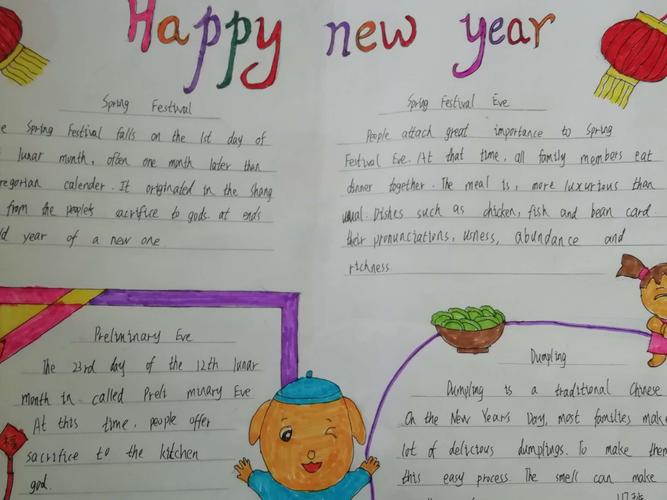 Happy new year
Spring Festival
Spring Festival falls on the 1st day of
lunar month, often one month later than
regorian calender. It originated in the Shang
from the people's sacrifice to gods at ends
ld year of a new one
Spring Festival Eve
People attach great importance to Spring
Festival Eve. At that time, all family members eat
dinner together. The meal is, more luxurious than
usual. Dishes such as chicken, fish and bean card
their pronunciations, usness, abundance and
richness
Preliminary Eve
The 23rd day of the 12th lunar
month in called Preli minary Eve
At this time, people offer
sacrifice to the kitchen
god.
Dumpling
Dumpling is a traditional Chinese
On the New Years Day, most families make
lot of delicious dumplings. To make them
this easy process. The smell can make
福